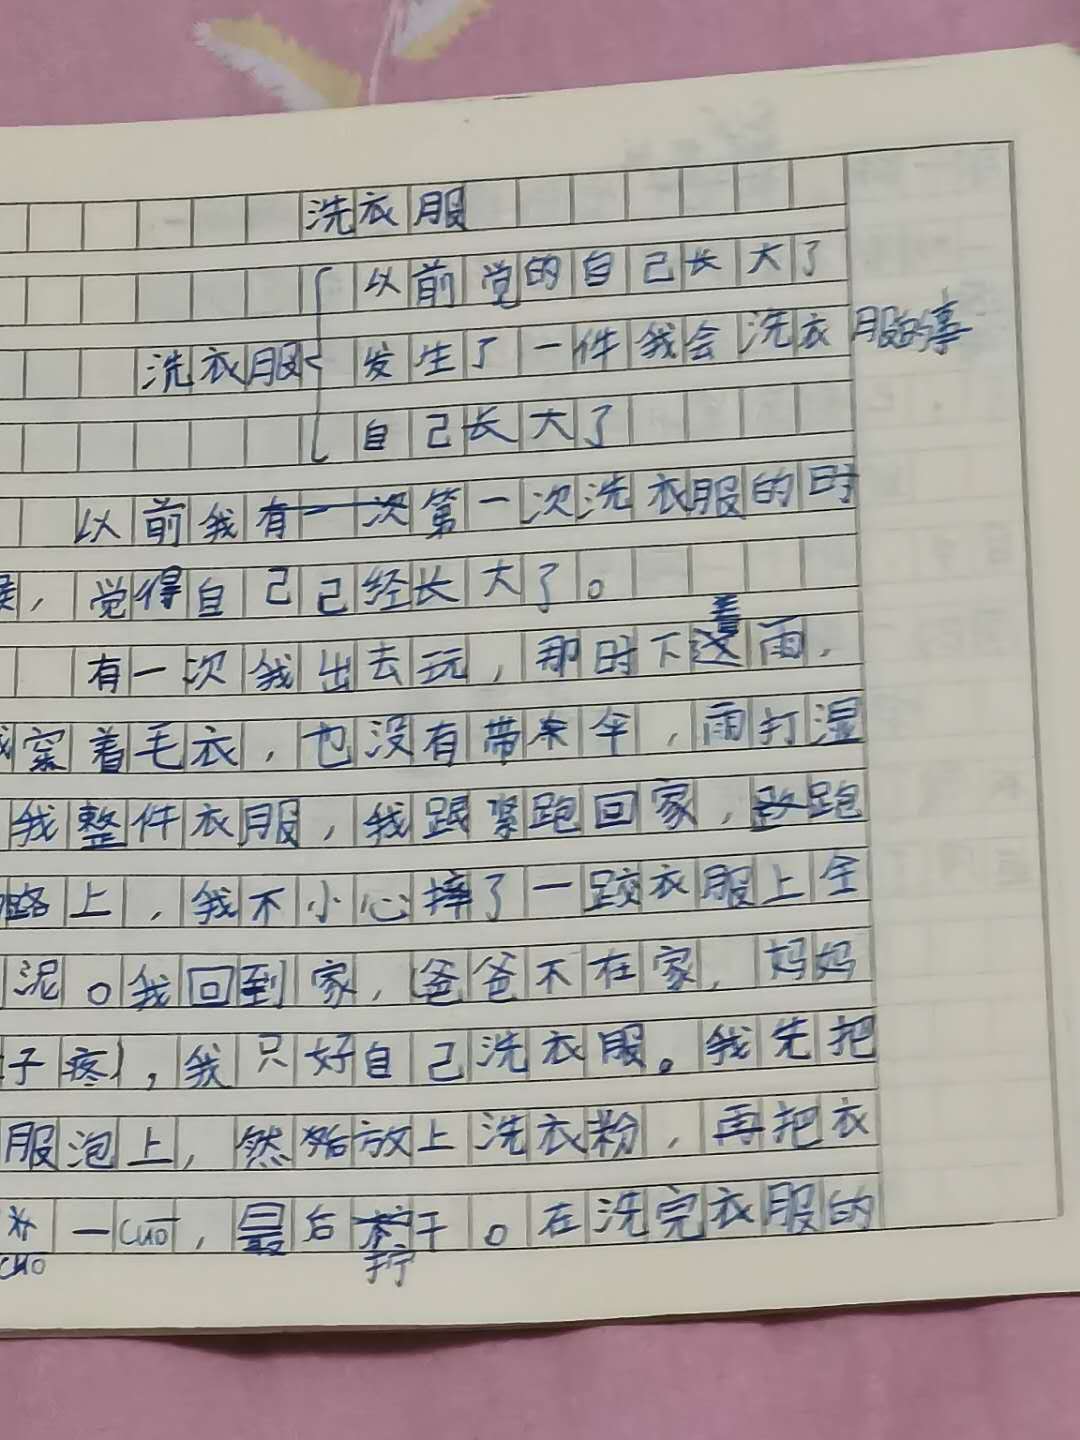 洗衣服
以前觉的自己长大了
洗衣服 发生了一件我会洗衣服的事
自己长大了
以前我有一次第一次洗衣服的时
候，觉得自己己经长大了。
有一次我出去玩，那时下着雨，
我穿着毛衣，也没有带伞，雨打湿
我整件衣服，我跟紧跑回家，跑
路上，我不小心摔了一跤衣服上全
泥。我回到家，爸爸不在家，妈妈
子疼，我只好自己洗衣服。我先把
服泡上，然后放上洗衣粉，再把衣
一cuo，最后拧干。在洗完衣服的
cuo